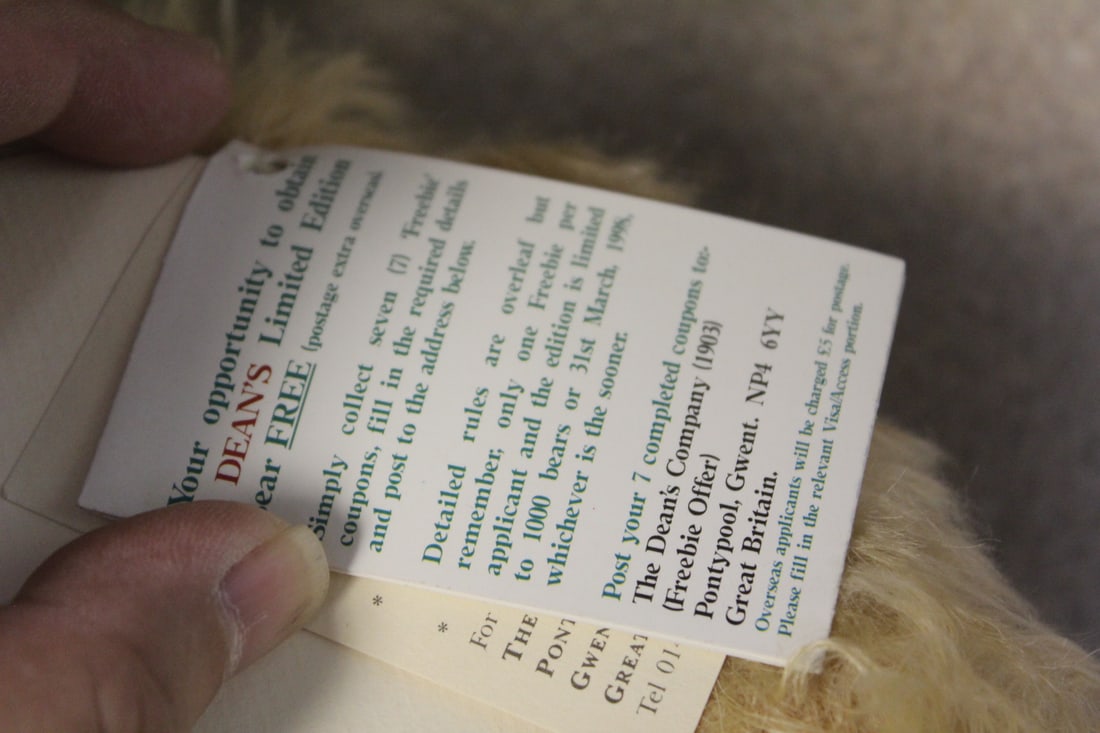 Your opportunity to obtain
DEAN'S Limited Edition
ear FREE (postage extra overseas).
Simply collect seven (7) 'Freebie'
coupons, fill in the required details
and post to the address below.
Detailed rules are overleaf but
remember, only one Freebie per
applicant and the edition is limited
to 1000 bears or 31st March, 1998,
whichever is the sooner.
Post your 7 completed coupons to:-
The Dean's Company (1903)
(Freebie Offer)
Pontypool, Gwent. NP4 6YY
Great Britain.
Overseas applicants will be charged £5 for postage.
Please fill in the relevant Visa/Access portion.
*
*
For
THE
PONT
GWEN
GREAT
Tel 01